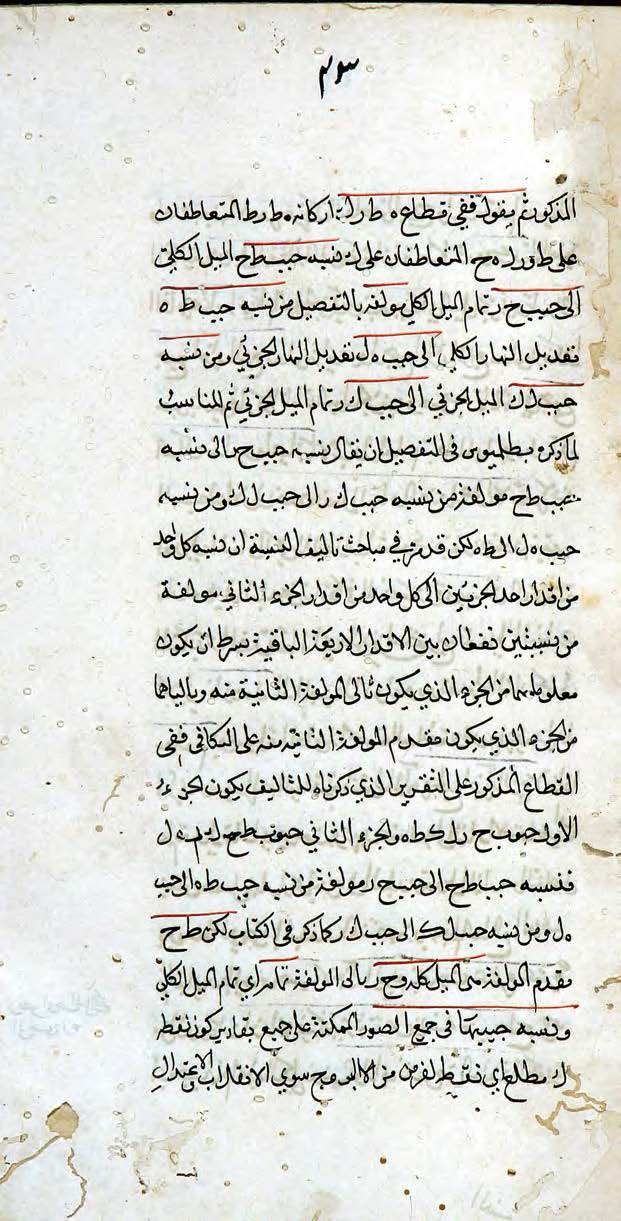 ٤٣
المذكور ثم يقول ففي قطاع ه ط ر ل اركانه ه ط ر ط المتعاطفان
على ط و ر ل ه ح المتعاطفان على ك نسبه جيب ط ح الميل الكلي
الى جيب ح ر تمام الميل الكلي مولفة بالتفصيل من نسبه جيب ط ه
تعديل النهار الكلي الى جيب ه ل تعديل النهار الجزئي ومن نسبه
جيب ل ك الميل الجزئي الى جيب ك ر تمام الميل الجزئي ثم المناسب
لما ذكره بطلميوس في التفصيل ان يقال نسبه جيب ح ر الى نسبه
جيب ط ح مولفة من نسبه جيب ك ر الى جيب ل ك ومن نسبه
جيب ه ل الى ط ه لكن قد مر في مباحث تاليف النسبة ان نسبه كل واحد
من اقدار احد الجزئين الى كل واحد من اقدار الجزء الثاني مولفة
من نسبتين تقعان بين الاقدار الاربعة الباقية بشرط ان يكون
معلوما من الجزء الذي يكون تالى المولفة الثانية منه وتالياهما
من الجزء الذي يكون مقدم المولفة الثانيه منه على التكافي ففي
القطاع المذكور على التقرير الذي ذكرناه للتاليف يكون الجزء
الاول جيوب ح ر ل ك ط ه والجزء الثاني جيوب ط ح ك ر ه ل
فنسبه جيب ط ح الى جيب ح ر مولفة من نسبه جيب ط ه الى جيب
ه ل ومن نسبه جيب ل ك الى جيب ك ر كما ذكر في الكتاب لكن ط ح
مقدم المولفة هى الميل كله و ح ر تالى المولفة تمامه اي تمام الميل الكلي
ونسبه جيبيهما في جميع الصور الممكنة على جميع تقادير كون نقطه
ل مطلع اي نقطه تفرض من فلك البروج سوي الانقلاب والاعتدال